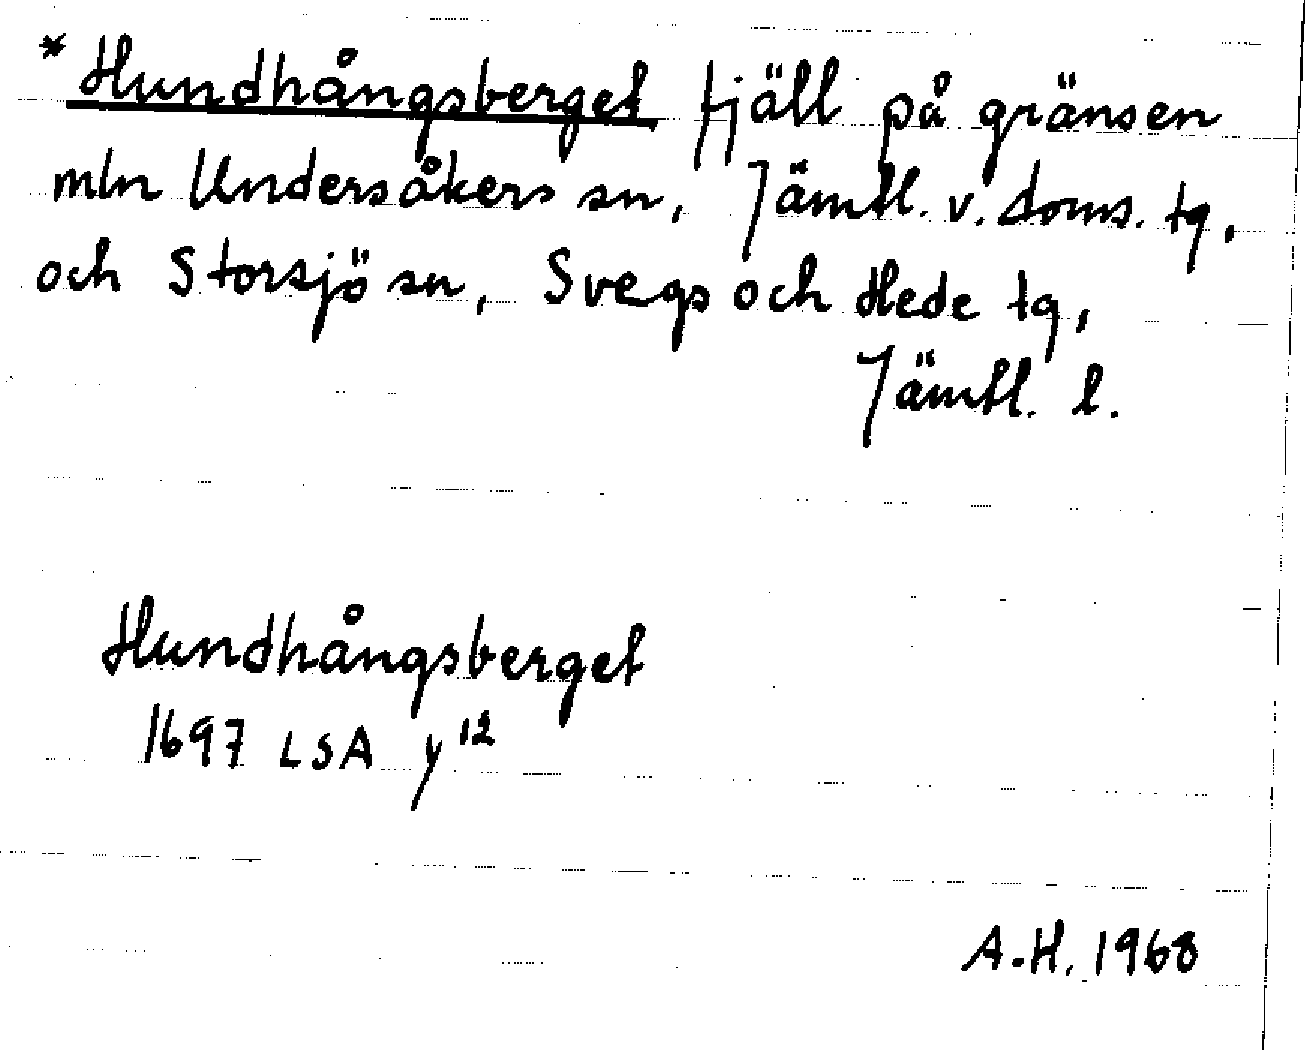 * Hundhångsberget fjäll på gränsen
mln Undersåkers sn, Jämtl. v. doms. tg,
och Storsjö sn, Svegs och Hede tg,
Jämtl. l.
Hundhångsberget
1697 LSA y¹²
A.H. 1968